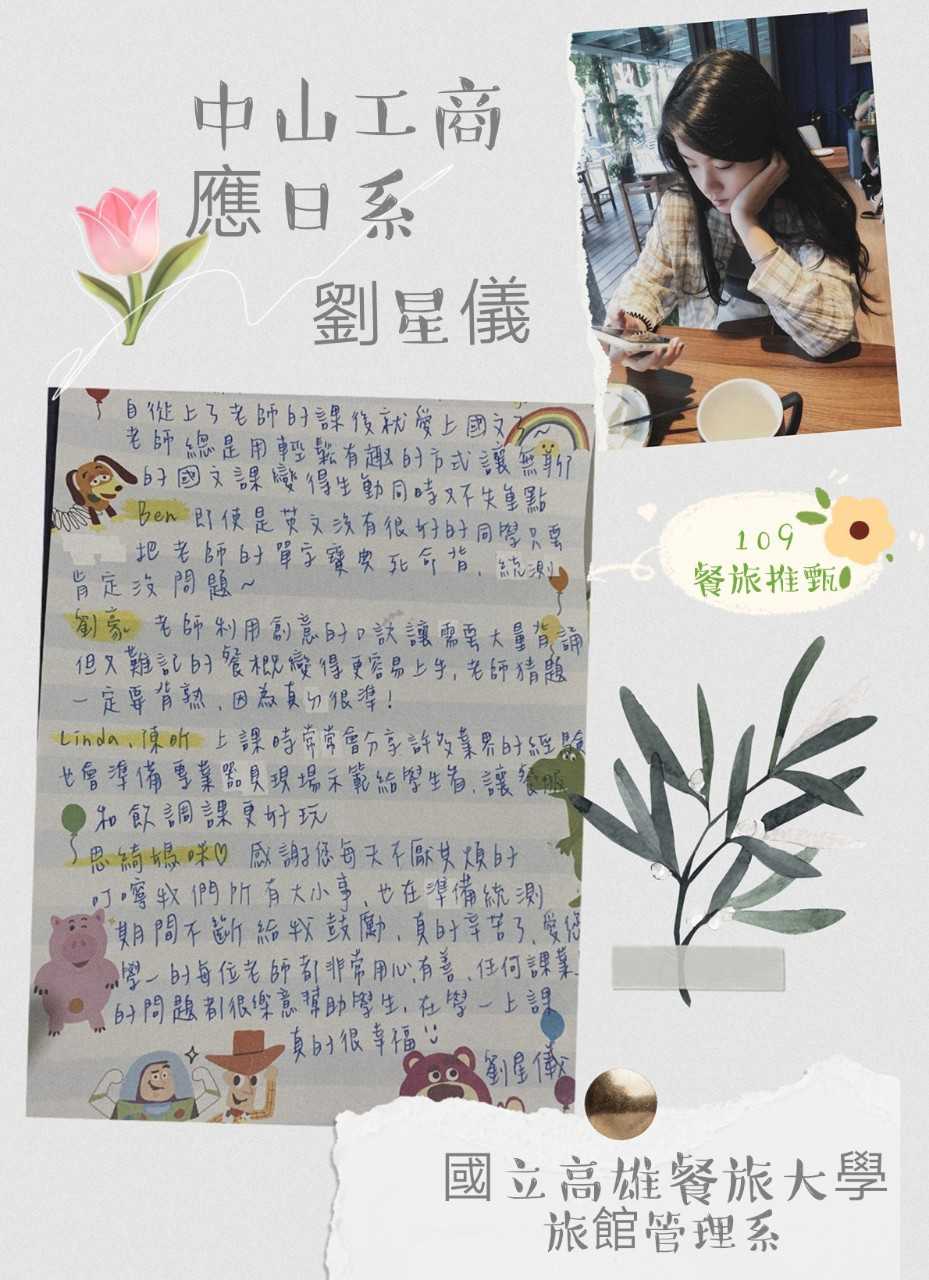 中山工商
應日系
劉星儀
自從上了老師的課後就愛上國文了~
老師總是用輕鬆有趣的方式讓無聊
的國文課變得生動同時又不失重點
Ben 即使是英文沒有很好的同學只要
把老師的單字寶典死命背、統測
肯定沒問題~
109
餐旅推甄
劉豪 老師利用創意的口訣讓需要大量背誦
但又難記的餐概變得更容易上手,老師猜題
一定要背熟,因為真的很準!
Linda、陳昕 上課時常常會分享許多業界的經驗
也會準備專業器具現場示範給學生看,讓餐服
和飲調課更好玩
思綺媽咪♡ 感謝您每天不厭其煩的
叮嚀我們所有大小事,也在準備統測
期間不斷給我鼓勵,真的辛苦了,愛您
學一的每位老師都非常用心、有善、任何課業
的問題都很樂意幫助學生,在學一上課
真的很幸福
劉星儀
國立高雄餐旅大學
旅館管理系